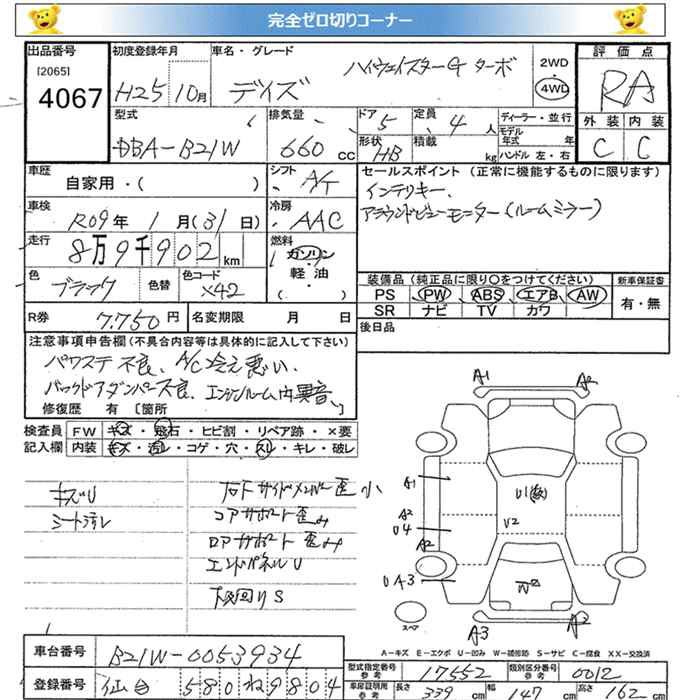 完全ゼロ切りコーナー
出品番号 初度登録年月 車名・グレード 評価点
[2065]
4067 H25 10月 デイズ ハイウェイスターG ターボ 2WD 4WD RA
型式 排気量 ドア 定員 ディーラー・並行 外装 内装
DBA-B21W 660cc 5 4人 モデル年式 年 C C
形状 HB 積載 kg ハンドル 左・右
車歴 自家用・( ) シフト A/T セールスポイント (正常に機能するものに限ります)
車検 R09年 1月(31日) 冷房 AAC インテリキー.
アラウンドビューモニター(ルームミラー)
走行 8万9千902km 燃料 ガソリン・軽油 ( )
色 ブラック 色替 色コード X42
装備品 (純正品に限り○をつけてください) 新車保証書
PS PW ABS エアB AW 有・無
SR ナビ TV カワ
R券 7.750円 名変期限 月 日 後日品
注意事項申告欄(不具合内容等は具体的に記入して下さい)
パワステ不良、A/C冷え悪い、
バックドアダンパー不良、エンジンルーム内異音、
修復歴 有 [箇所
検査員 FW キズ・飛石・ヒビ割・リペア跡・×要
記入欄 内装 キズ・汚レ・コゲ・穴・スレ・キレ・破レ
キズU
シート汚レ
右F サイドメンバー歪 小
コアサポート歪み
ロアサポート歪み
エンドパネルU
下廻りS
A1 A2
A1
A2
U4
A2
UA3
U1(数)
U2
W2
A3 A2
スペア
A-キズ E-エクボ U-凹み W-補修跡 S-サビ C-腐食 XX-交換済
車台番号 B21W-0053934
登録番号 仙台 580ね9804
型式指定番号 参考 17552 類別区分番号 参考 0012
車庫証明用 参考 長さ 339cm 幅 147cm 高さ 162cm